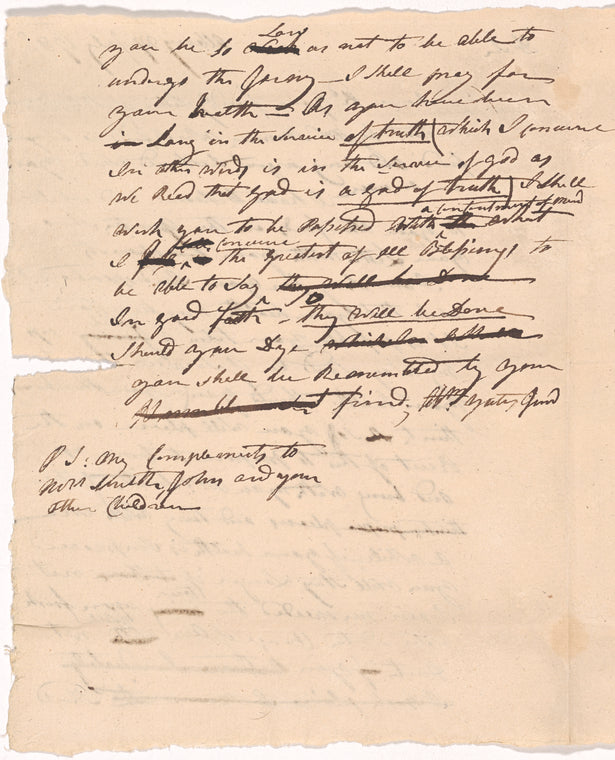 you be so Long as not to be able to
undergo the Jorny – I shall pray for
your Smith – As you have been
in Long in the Service of truth (which I conceive
In other words is in the Service of god as
we Read that god is a god of truth) I shall
wish you to be Possessed with a contentment of mind what
I conceive the greatest of all Blessings to
be able to Say they will be Done
In good faith – O thy will be Done
Should you Dye
you shall be Remembered by your
friend, Yates Jund
P S: my Complements to
Mrs Smith, John and your
other Children